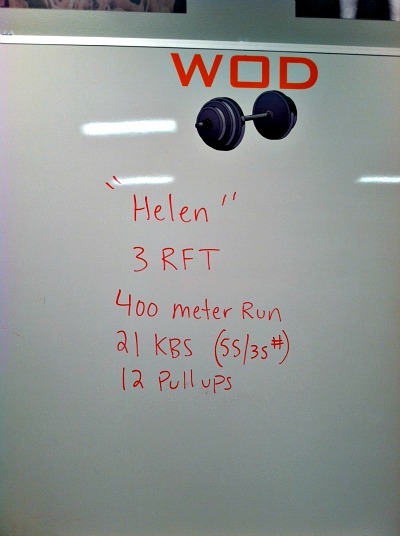 WOD
"Helen"
3 RFT
400 meter Run
21 KBS (55/35#)
12 Pull ups